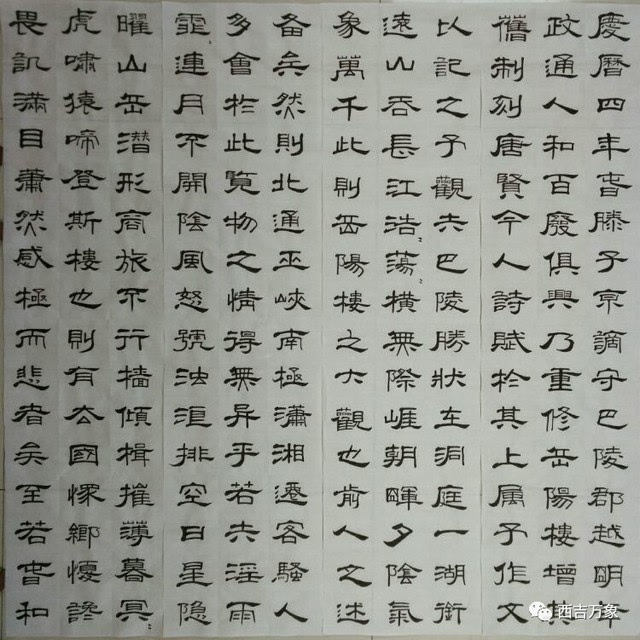 慶曆四年春滕子京謫守巴陵郡越明年
政通人和百廢俱興乃重修岳陽樓增其
舊制刻唐賢今人詩賦於其上属予作文
以記之予觀夫巴陵勝狀在洞庭一湖銜
遠山吞長江浩〻蕩〻橫無際崖朝暉夕陰氣
象萬千此則岳陽樓之大觀也前人之述
备矣然則北通巫峽南極瀟湘遷客騷人
多會於此覧物之情得無异乎若夫淫雨
霏連月不開陰風怒號浊浪排空日星隐
曜山岳潛形商旅不行檣傾楫摧薄暮冥〻
虎嘯猿啼登斯樓也則有去國懷鄉憂讒
畏譏滿目蕭然感極而悲者矣至若春和
西吉万象